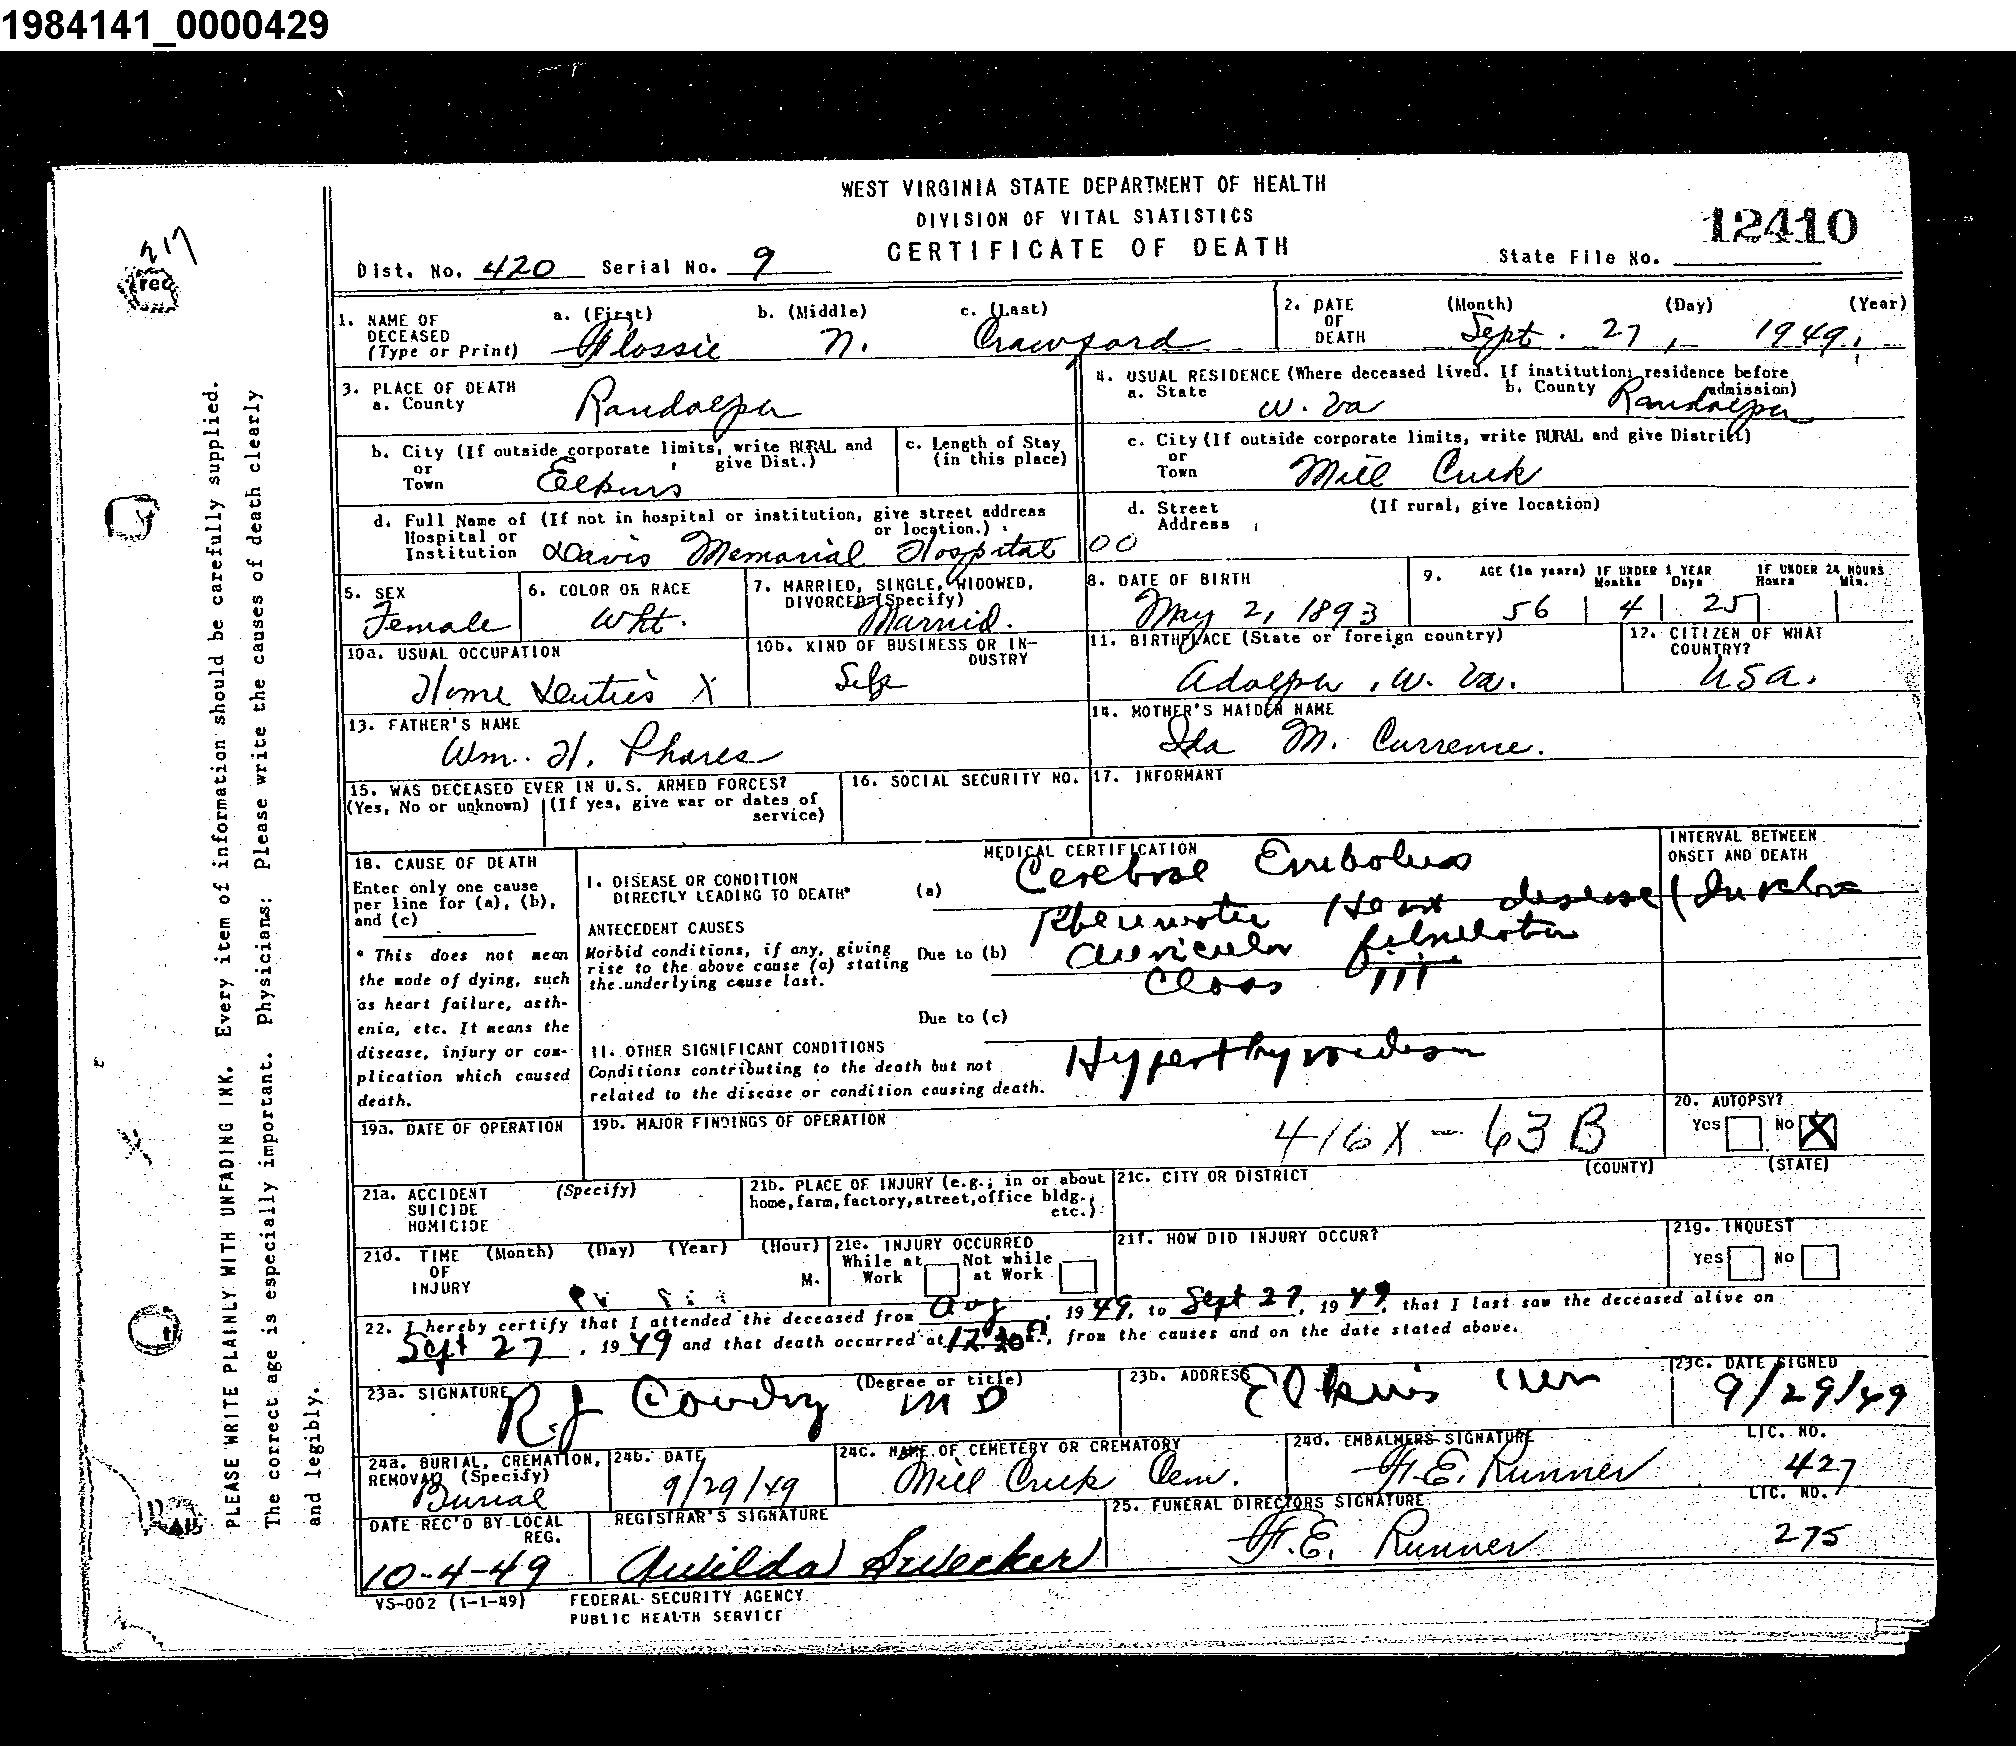 1984141_0000429
WEST VIRGINIA STATE DEPARTMENT OF HEALTH
DIVISION OF VITAL STATISTICS
CERTIFICATE OF DEATH
12410
Dist. No. 420 Serial No. 9 State File No.
1. NAME OF DECEASED (Type or Print) a. (First) Flossie b. (Middle) N. c. (Last) Crawford
2. DATE OF DEATH (Month) (Day) (Year) Sept. 27, 1949
3. PLACE OF DEATH
a. County Randolph
4. USUAL RESIDENCE (Where deceased lived. If institution; residence before admission)
a. State W. Va b. County Randolph
b. City (If outside corporate limits, write RURAL and give Dist.) or Town Elkins
c. Length of Stay (in this place)
c. City (If outside corporate limits, write RURAL and give District) or Town Mill Creek
d. Full Name of (If not in hospital or institution, give street address or location.) Hospital or Institution Davis Memorial Hospital
d. Street Address (If rural, give location)
00
5. SEX Female
6. COLOR OR RACE Wht.
7. MARRIED, SINGLE, WIDOWED, DIVORCED (Specify) Married.
8. DATE OF BIRTH May 2, 1893
9. AGE (In years) 56 IF UNDER 1 YEAR Months 4 Days 25 IF UNDER 24 HOURS Hours Min.
10a. USUAL OCCUPATION Home Duties X
10b. KIND OF BUSINESS OR INDUSTRY Self
11. BIRTHPLACE (State or foreign country) Adolph, W. Va.
12. CITIZEN OF WHAT COUNTRY? USA.
13. FATHER'S NAME Wm. H. Phares
14. MOTHER'S MAIDEN NAME Ida M. Currence.
15. WAS DECEASED EVER IN U.S. ARMED FORCES?
(Yes, No or unknown) (If yes, give war or dates of service)
16. SOCIAL SECURITY NO.
17. INFORMANT
18. CAUSE OF DEATH
Enter only one cause per line for (a), (b), and (c)
* This does not mean the mode of dying, such as heart failure, asthenia, etc. It means the disease, injury or complication which caused death.
MEDICAL CERTIFICATION
INTERVAL BETWEEN ONSET AND DEATH
I. DISEASE OR CONDITION DIRECTLY LEADING TO DEATH* (a) Cerebral Embolus
ANTECEDENT CAUSES
Morbid conditions, if any, giving rise to the above cause (a) stating the underlying cause last.
Due to (b) Rheumatic Heart disease
Auricular fibrillation
Class III
Due to (c)
II. OTHER SIGNIFICANT CONDITIONS
Conditions contributing to the death but not related to the disease or condition causing death.
Hyperthyroidism
19a. DATE OF OPERATION
19b. MAJOR FINDINGS OF OPERATION
416X - 63 B
20. AUTOPSY?
Yes No X
21a. ACCIDENT SUICIDE HOMICIDE (Specify)
21b. PLACE OF INJURY (e.g., in or about home, farm, factory, street, office bldg., etc.)
21c. CITY OR DISTRICT (COUNTY) (STATE)
21d. TIME OF INJURY (Month) (Day) (Year) (Hour) M.
21e. INJURY OCCURRED
While at Work Not while at Work
21f. HOW DID INJURY OCCUR?
21g. INQUEST
Yes No
22. I hereby certify that I attended the deceased from Aug, 1949, to Sept 27, 1949, that I last saw the deceased alive on
Sept 27, 1949 and that death occurred at 12:20 , from the causes and on the date stated above.
23a. SIGNATURE (Degree or title) R. J. Condry MD
23b. ADDRESS Elkins
23c. DATE SIGNED 9/29/49
24a. BURIAL, CREMATION, REMOVAL (Specify) Burial
24b. DATE 9/29/49
24c. NAME OF CEMETERY OR CREMATORY Mill Creek Cem.
24d. EMBALMERS SIGNATURE F. E. Runner LIC. NO. 427
DATE REC'D BY LOCAL REG. 10-4-49
REGISTRAR'S SIGNATURE Awilda Swecker
25. FUNERAL DIRECTORS SIGNATURE F. E. Runner LIC. NO. 275
VS-002 (1-1-49)
FEDERAL SECURITY AGENCY
PUBLIC HEALTH SERVICE
PLEASE WRITE PLAINLY WITH UNFADING INK. Every item of information should be carefully supplied.
The correct age is especially important. Physicians: Please write the causes of death clearly
and legibly.
217
rec